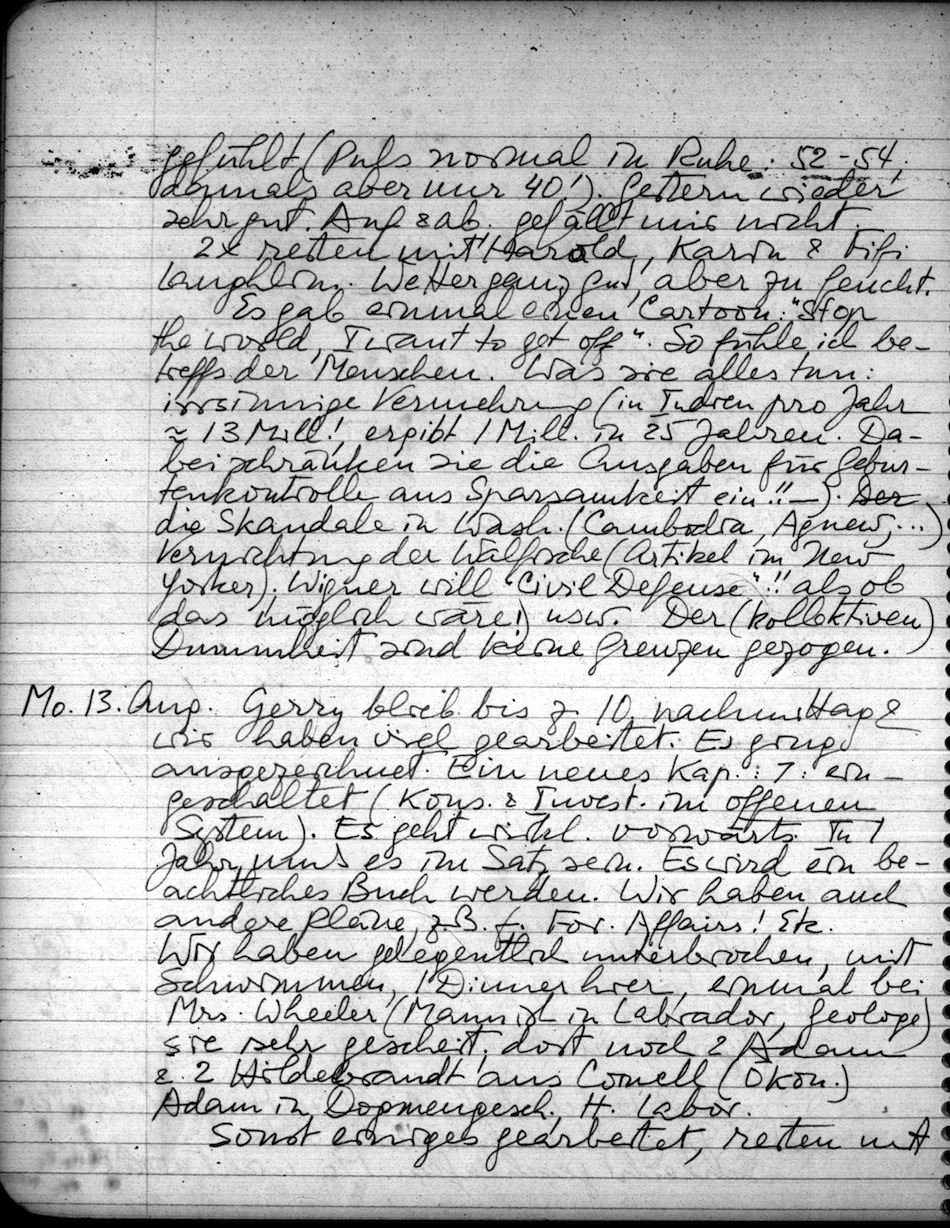 gefühlt (Puls normal in Ruhe: 52-54,
damals aber nur 40!). Gestern wieder
sehr gut. Auf & ab. gefällt mir nicht.
2x reiten mit Harold, Karin & Fifi
Laughlin. Wetter ganz gut, aber zu feucht.
Es gab einmal einen Cartoon: "Stop
the world, I want to get off". So fühle ich be-
treffs der Menschen. Was sie alles tun:
irrsinnige Vermehrung (in Indien pro Jahr
≈ 13 Mill!, ergibt 1 Mill. in 25 Jahren. Da-
bei schränken sie die Ausgaben für Gebur-
tenkontrolle aus Sparsamkeit ein!! —). Der
die Skandale in Wash. (Cambodia, Agnew,...)
Vernichtung der Walfische (Artikel im New
Yorker). Wigner will "Civil Defense"!! als ob
das möglich wäre!) usw. Der (kollektiven)
Dummheit sind keine Grenzen gezogen.
Mo. 13. Aug. Gerry blieb bis z. 10. nachmittag &
wir haben viel gearbeitet. Es ging
ausgezeichnet. Ein neues Kap.: 7: ein-
geschaltet (Kons. & Invest. im offenen
System). Es geht wirkl. vorwärts. In 1
Jahr muss es im Satz sein. Es wird ein be-
achtliches Buch werden. Wir haben auch
andere Pläne, z.B. f. For. Affairs! Etc.
Wir haben gelegentlich unterbrochen, mit
Schwimmen, 1 Dinner hier, einmal bei
Mrs. Wheeler (Mann ist in Labrador, Geologe)
sie sehr gescheit, dort noch 2 Adam
& 2 Hildebrandt aus Cornell (Ökon.)
Adam in Dogmengesch. H. Labor.
Sonst einiges gearbeitet, reiten mit